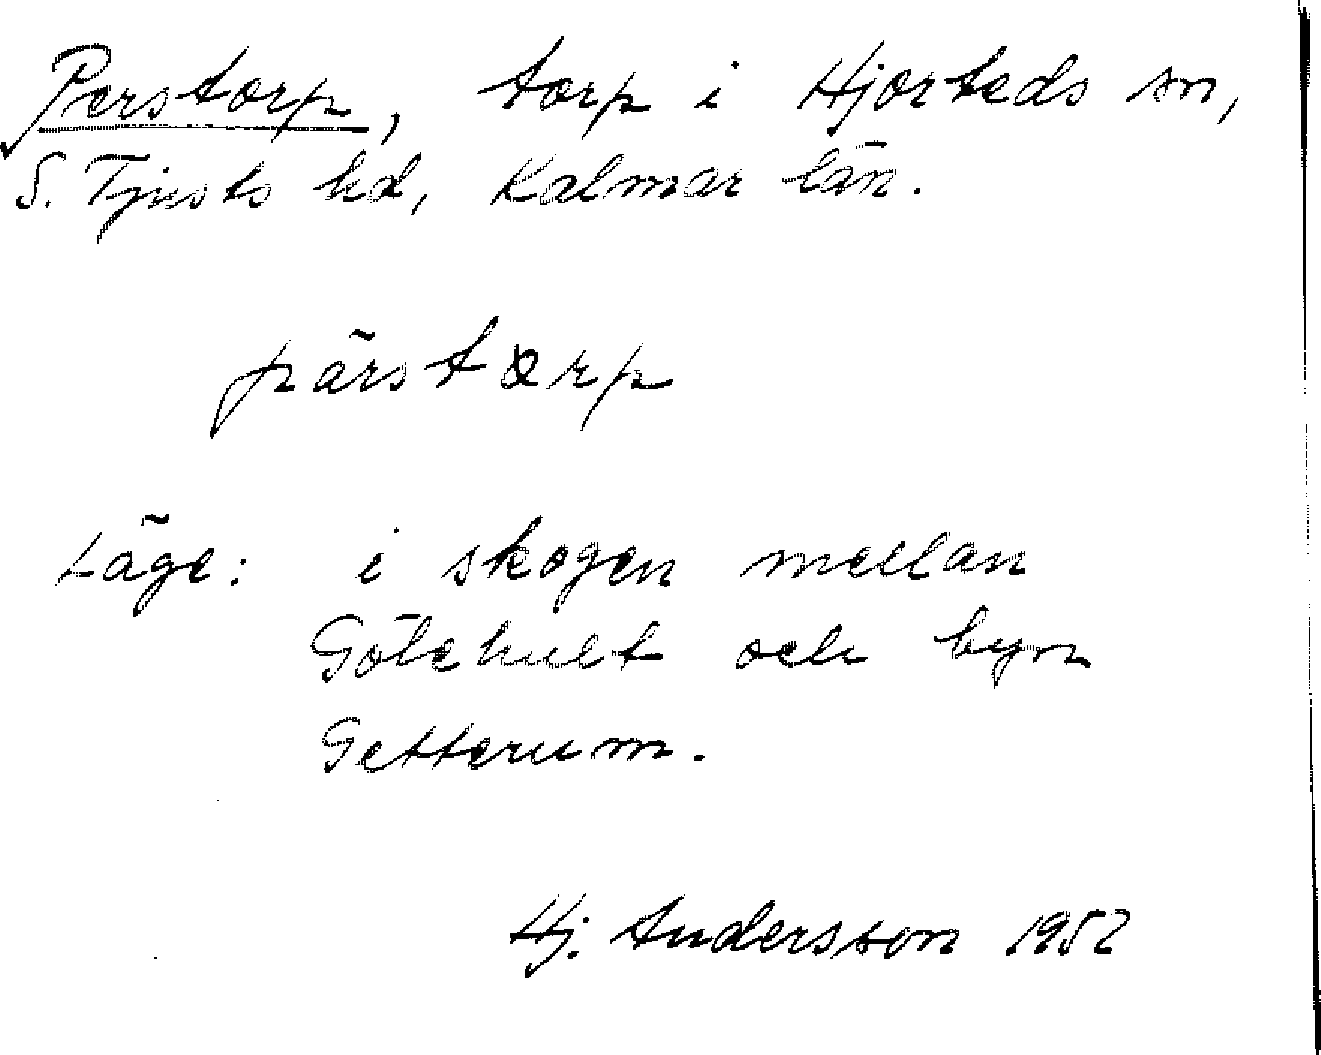 Perstorp, torp i Hjorteds sn,
S. Tjusts hd, Kalmar län.
pärstorp
Läge: i skogen mellan
Götehult och byn
Getterum.
Hj. Andersson 1952